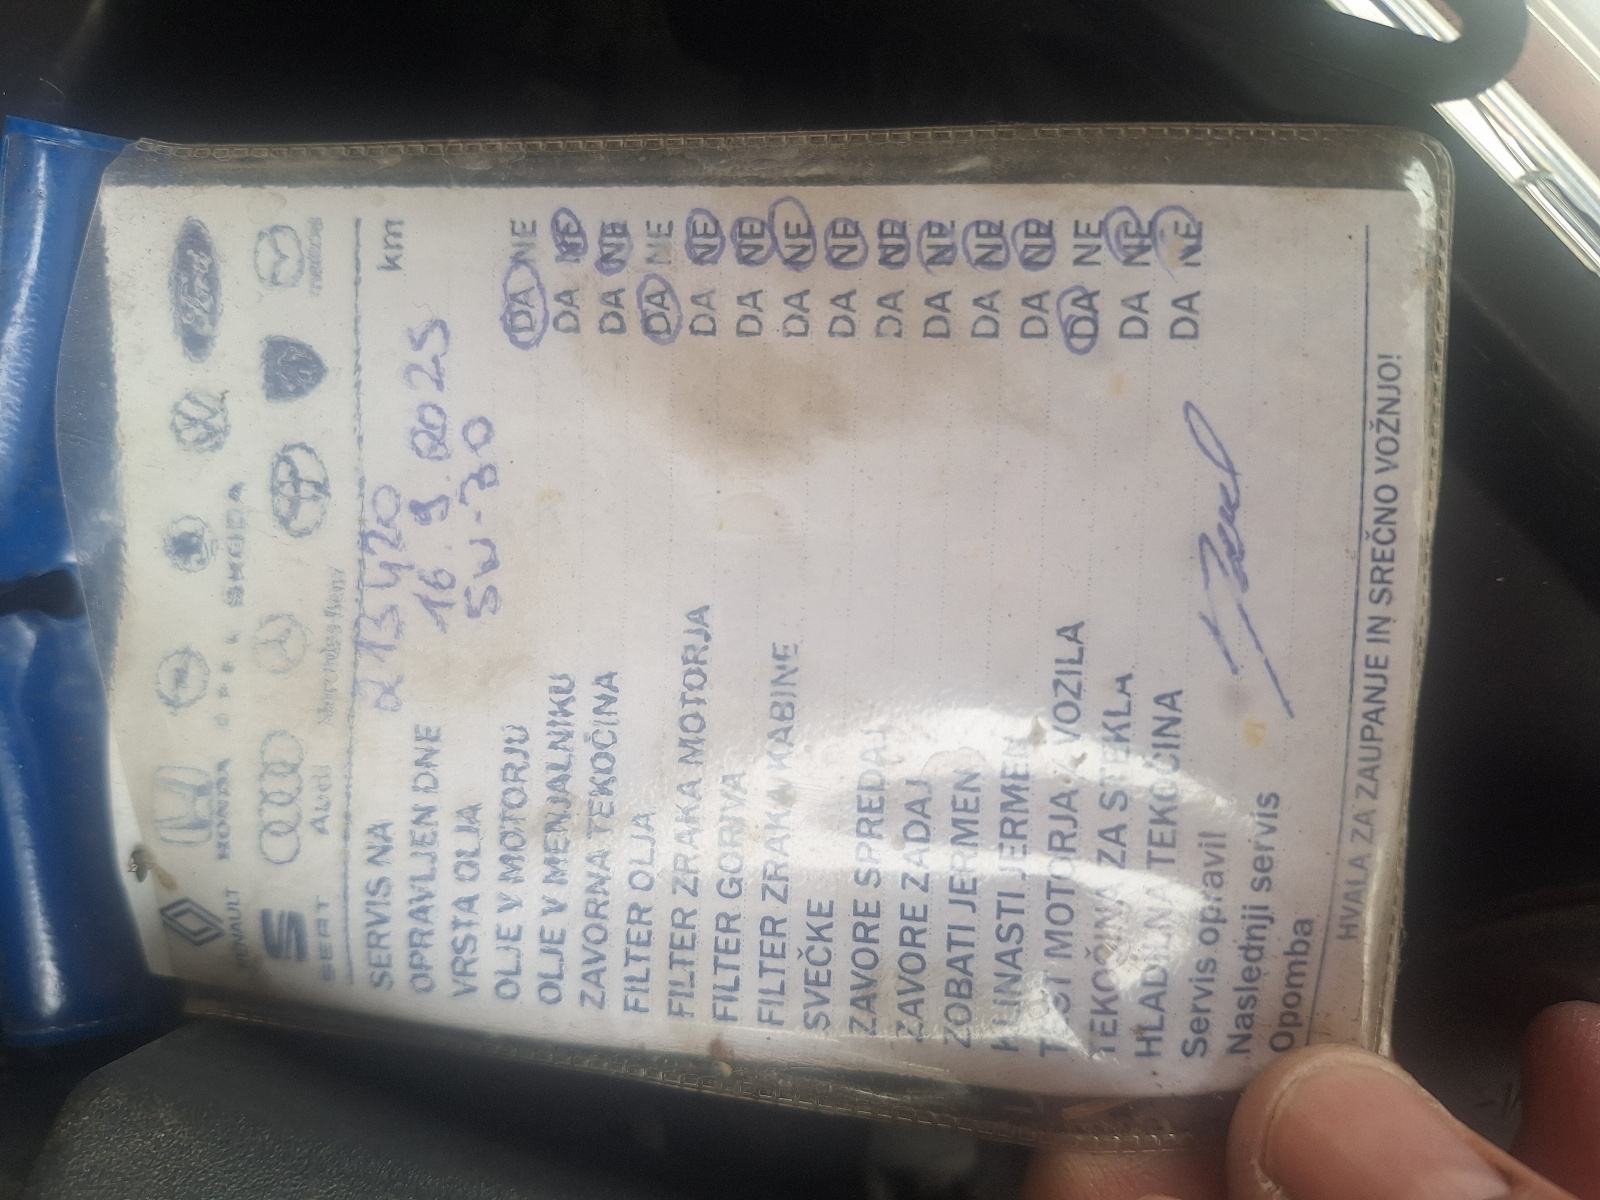 RENAULT HONDA OPEL SKODA Ford
SEAT Audi Mercedes-Benz mazda
SERVIS NA 213420 km
OPRAVLJEN DNE 16. 9. 2025
VRSTA OLJA 5W-30
OLJE V MOTORJU DA NE
OLJE V MENJALNIKU DA NE
ZAVORNA TEKOČINA DA NE
FILTER OLJA DA NE
FILTER ZRAKA MOTORJA DA NE
FILTER GORIVA DA NE
FILTER ZRAKA KABINE DA NE
SVEČKE DA NE
ZAVORE SPREDAJ DA NE
ZAVORE ZADAJ DA NE
ZOBATI JERMEN DA NE
KLINASTI JERMEN DA NE
TEST MOTORJA / VOZILA DA NE
TEKOČINA ZA STEKLA DA NE
HLADILNA TEKOČINA DA NE
Servis opravil
Naslednji servis
Opomba
HVALA ZA ZAUPANJE IN SREČNO VOŽNJO!